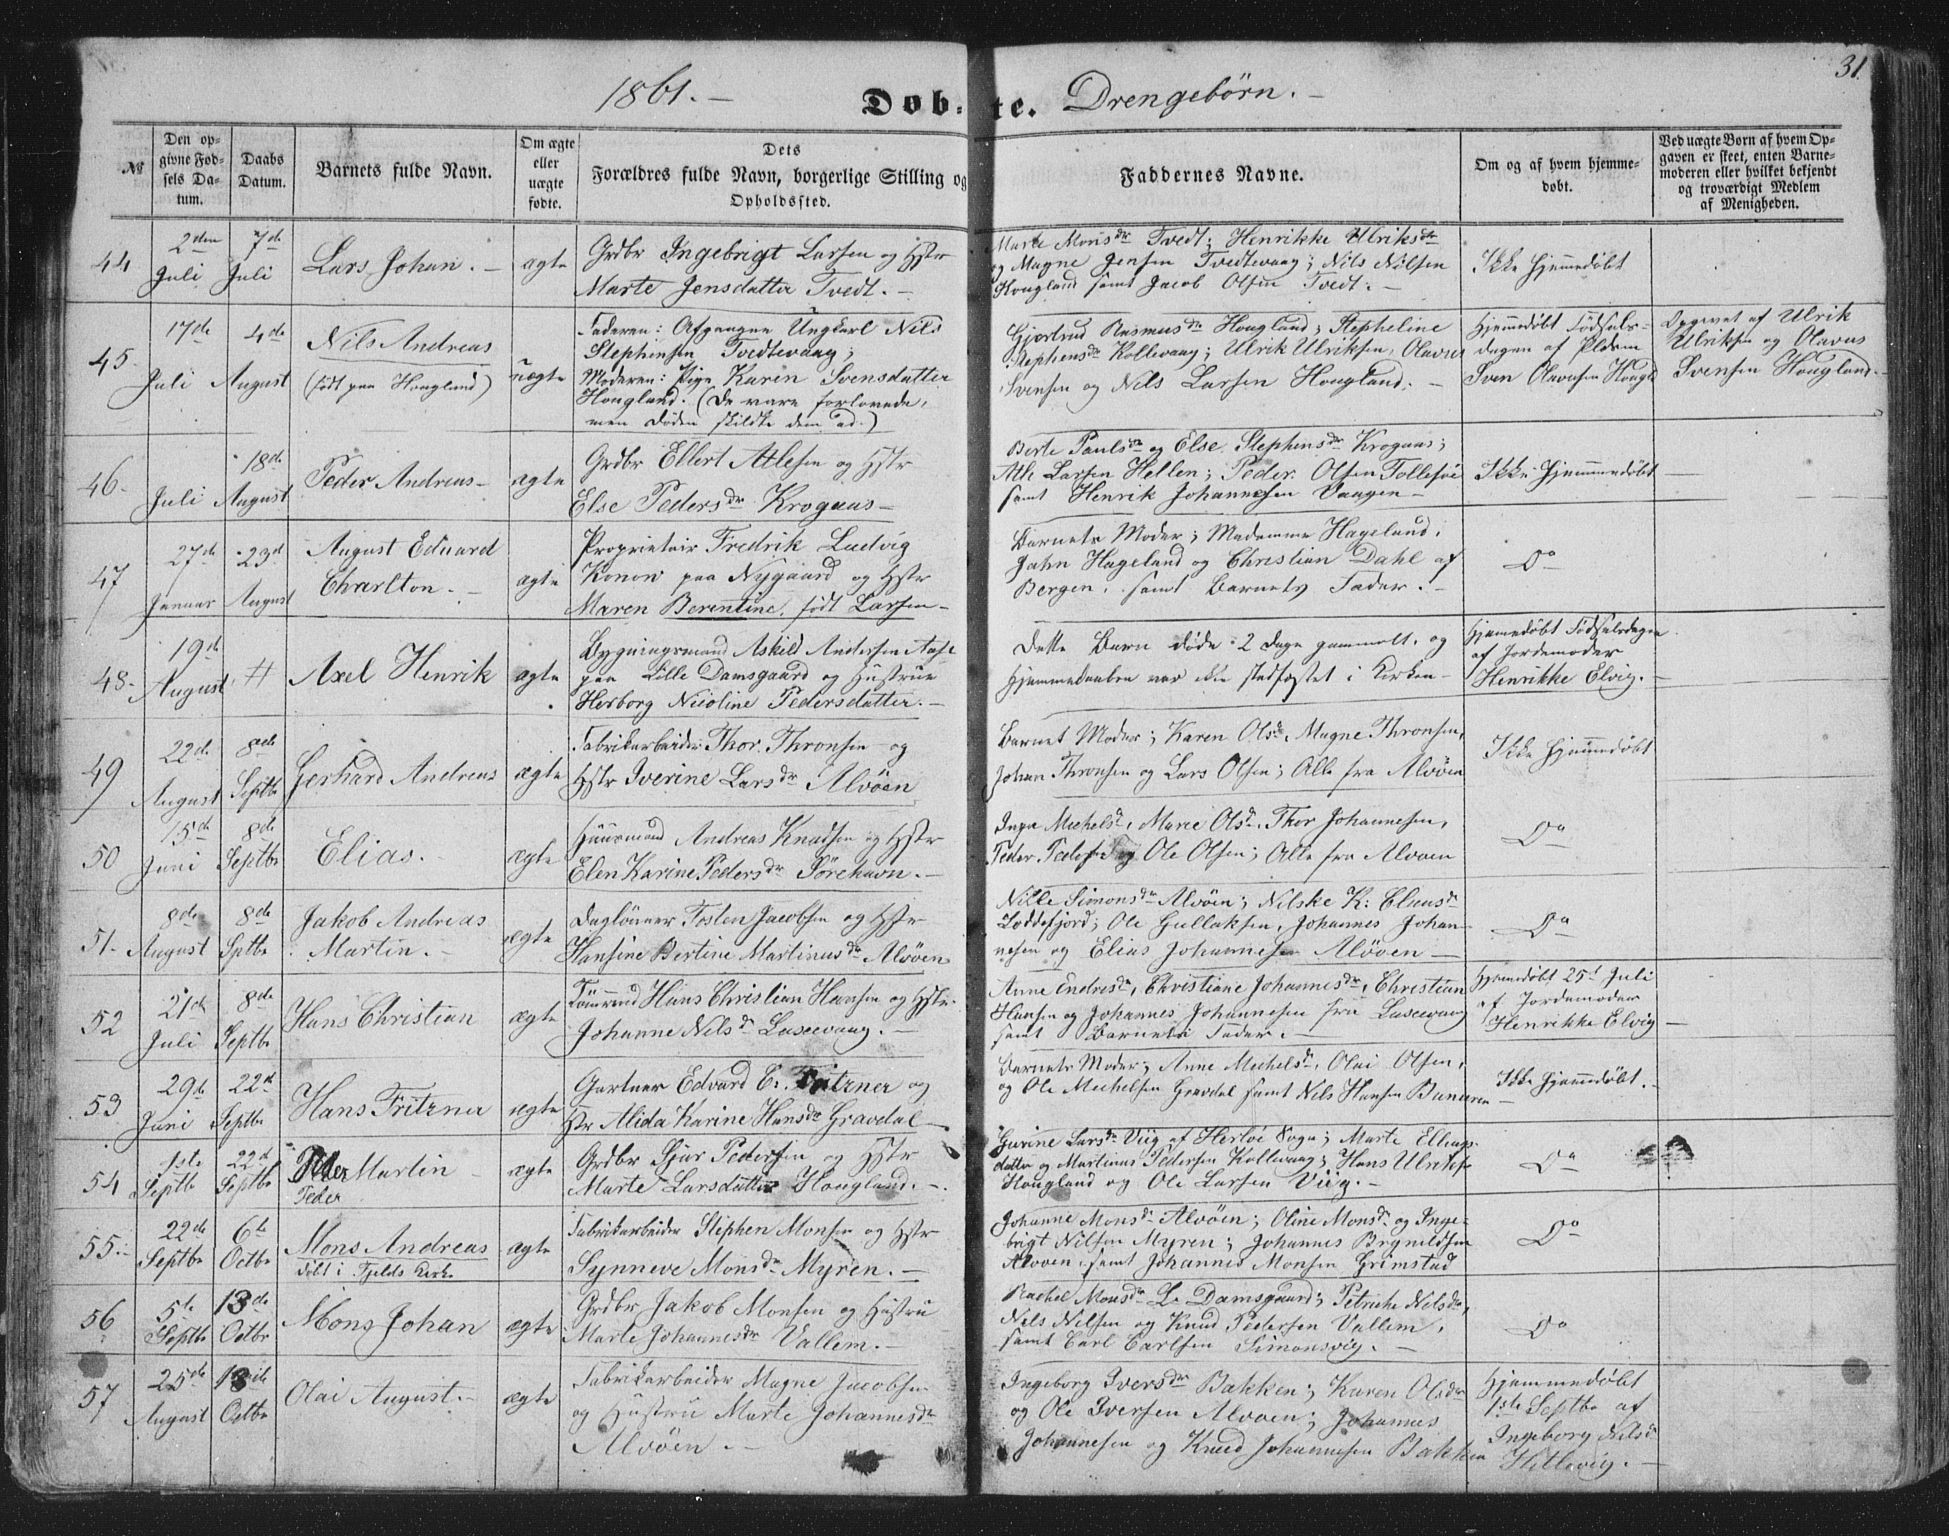 31
1861.-
Døb-te. Drengebörn.-
№
Den op-
givne Fød-
sels Da-
tum.
Daabs
Datum.
Barnets fulde Navn.
Om ægte
eller
uægte
fødte.
Dets
Forældres fulde Navn, borgerlige Stilling og
Opholdssted.
Faddernes Navne.
Om og af hvem hjemme-
døbt.
Ved uægte Børn af hvem Op-
gaven er skeet, enten Barne-
moderen eller hvilket bekjendt
og troværdigt Medlem
af Menigheden.
44
2den
Juli
7de
Juli
Lars Johan.-
ægte
Grdbr Ingebrigt Larsen og Hstr
Marte Jensdatter Tvedt.-
Marte Monsdr Tvedt; Henrikke Ulriksdr
og Magne Jensen Tvedtevaag; Nils Nilsen
Hougland samt Jacob Olsen Tvedt.-
Ikke hjemmedøbt
45
17de
Juli
4de
August
Nils Andreas
(født paa Hougland)
uægte
Faderen: Afgangne Ungkarl Nils
Stephensen Tvedtevaag;
Moderen: Pige Karen Svensdatter
Hougland. (De vare forlovede,
men Døden skildte dem ad.)
Gjertrud Rasmusdr Hougland; Stepheline
Stephensdr Kollevaag; Ulrik Ulriksen, Olavus
Svensen og Nils Larsen Hougland.-
Hjemmedøbt Fødsels-
dagen af
Sven Olavsen Hougld
Opgivet af Ulrik
Ulriksen og Olavus
Svensen Hougland.
46-
Juli
18de
August
Peder Andreas-
ægte
Grdbr Ellert Atlesen og Hstr
Else Pedersdr Krogaas-
Berte Paulsdr og Else Stephensdr Krogaas;
Atle Larsen Hellen; Peder Olsen Tollesøe
samt Henrik Johannesen Vaagen-
Ikke Hjemmedøbt
47
27de
Januar
23d
August
August Edvard
Charlton.-
ægte
Proprietair Fredrik Ludvig
Konow paa Nygaard og Hstr
Maren Berentine, født Larsen-
Barnets Moder; Madamme Hageland,
Jahn Hageland og Christian Dahl af
Bergen, samt Barnets Fader.-
Do
48-
19d
August
#
Axel Henrik
ægte
Bygningsmand Askild Andersen Aase
paa Lille Damsgaard og Hustrue
Herborg Nicoline Pedersdatter.-
Dette Barn døde 2 Dage gammelt, og
Hjemmedaaben var ikke stadfæstet i Kirken-
Hjemmedøbt Fødselsdagen
af Jordemoder
Henrikke Elvig.-
49
22de
August
8de
Septbr
Gerhard Andreas
ægte
Fabrikarbeider Thor Thronsen og
Hstr Iverine Larsdr Alvøen
Barnet Moder; Karen Olsdr, Magne Thronsen,
Johan Thronsen og Lars Olsen; Alle fra Alvøen
Ikke Hjemmedøbt
50
15de
Juni
8de
Septbr
Elias.
ægte
Huusmand Andreas Knudsen og Hstr
Elen Karine Pedersdr Sörehavn.-
Inga Michelsdr, Marie Olsdr, Thor Johannesen,
Peder Pedersen og Ole Olsen; Alle fra Alvøen
Do
51-
8de
August
8de
Sptbr
Jakob Andreas
Martin.-
ægte
Daglønner Tosten Jacobsen og Hstr
Hansine Bertine Martinusdr Alvøen
Nille Simonsdr Alvøen; Nilske K. Clausdr
Loddefjord; Ole Gullaksen, Johannes Johan-
nesen og Elias Johannesen Alvøen-
Do
52
21de
Juli
8de
Septbr
Hans Christian
ægte
Tømrmd Hans Christian Hansen og Hstr
Johanne Nilsdr Lasevaag.-
Anne Endresdr, Christiane Johannesdr, Christian
Hansen og Johannes Johannesen fra Lasevaag
samt Barnets Fader.-
Hjemmedøbt 25d Juli
af Jordemoder
Henrikke Elvig-
53
29de
Juni
22d
Septbr
Hans Fritzner
ægte
Gartner Edvard C. Fritzner og
Hstr Alida Karine Hansdr Gravdal-
Barnets Moder; Anne Michelsdr, Olai Olsen,
og Ole Michelsen Gravdal samt Nils Hansen
Ikke Hjemmedøbt.
54
1ste
Septbr
22d
Septbr
Peder Martin
Peder
ægte
Grdbr Sjur Pedersen og Hstr
Marte Larsdatter Hougland.-
Gurine Larsdr Viig af Herløe Sogn; Marte Ellings-
datter og Martinus Pedersen Kollevaag; Hans Ulriksen
Hougland og Ole Larsen Viig.-
Do
55-
22de
Septbr
6te
Octbr
Mons Andreas
døbt i Fjelds Kirke
ægte
Fabrikarbeider Stephen Monsen og Hstr
Synneve Monsdr Myren.-
Johanne Monsdr Alvøen; Oline Monsdr og Inge-
brigt Nilsen Myren; Johannes Brynildsen
Alvøen, samt Johannes Monsen Grimstad
Do
56
5te
Septbr
13de
Octbr
Mons Johan
ægte
Grdbr Jakob Monsen og Hustru
Marte Johannesdr Vallem.-
Rachel Monsdr L. Damsgaard; Petrike Nilsdr,
Nils Nilsen og Knud Pedersen Vallem,
samt Carl Carlsen Simonsvig.-
Do
57
25de
August
13de
Octbr
Olai August.-
ægte
Fabrikarbeider Magne Jacobsen
og Hustru Marte Johannesdr
Alvøen.-
Ingeborg Iversdr Bakken; Karen Olsdr
og Ole Iversen Alvøen; Johannes
Johannesen og Knud Johannesen Bakken
Hjemmedøbt
1ste Septbr af
Ingeborg Nilsdr
Hillevig.-